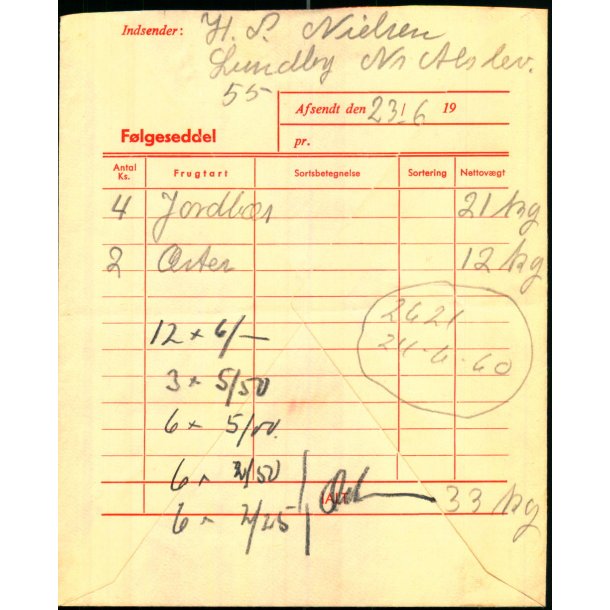 Indsender: H. P. Nielsen
Lundby Nr Alslev.
55
Afsendt den 23/6 19
Følgeseddel
pr.
Antal Ks. Frugtart Sortsbetegnelse Sortering Nettovægt
4 Jordbær 21 kg
2 Ærter 12 kg
2621
24-6-60
12 × 6/—
3 × 5/50
6 × 5/00.
6 × 2/50
IALT 33 kg
6 × 2/25